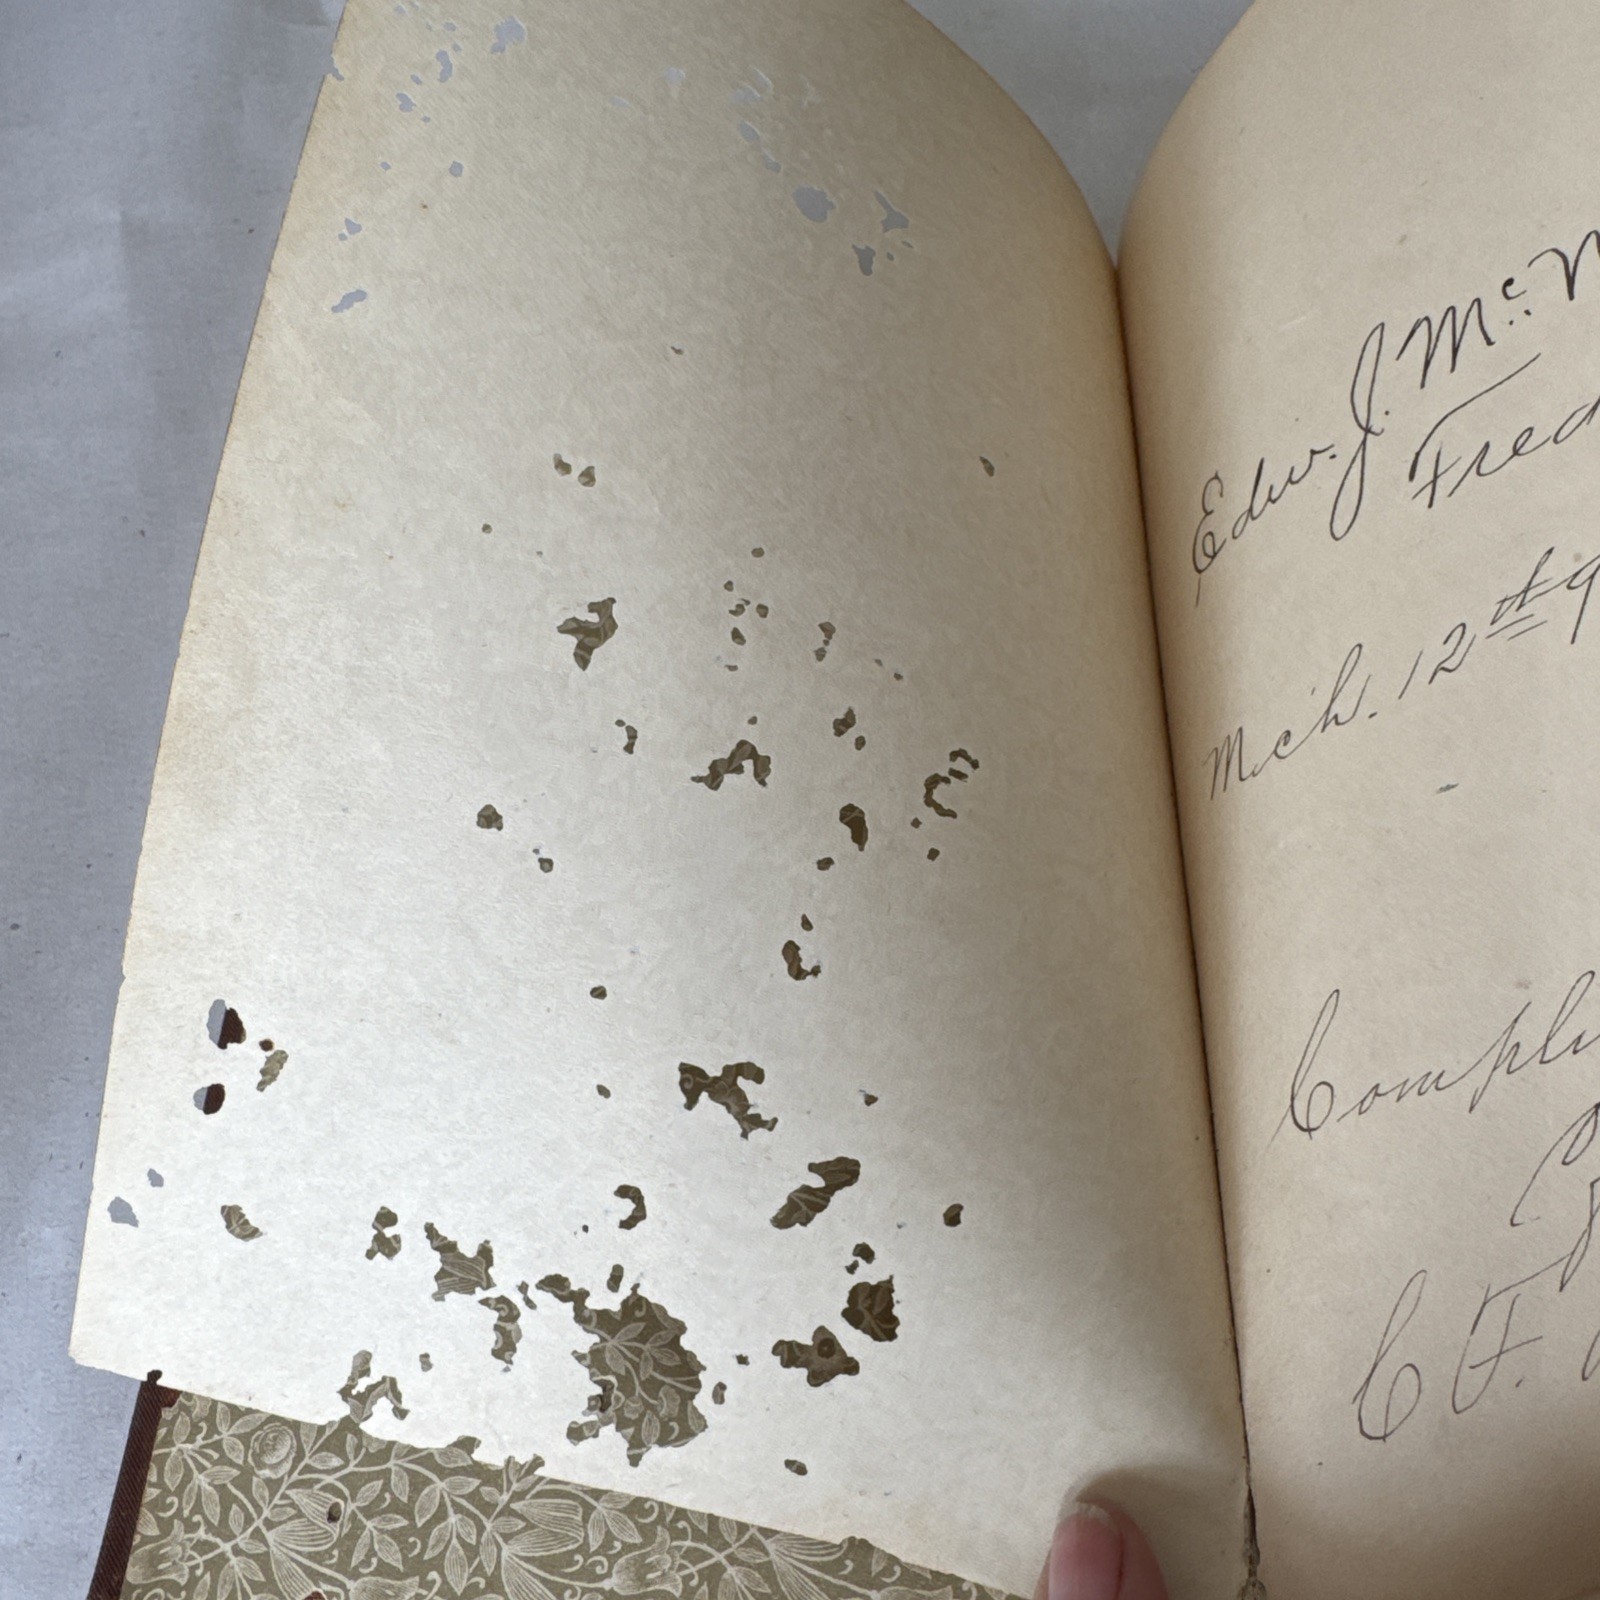 Edw. J. Mc
Fred
Mch. 12th 9
Compli
C. F.